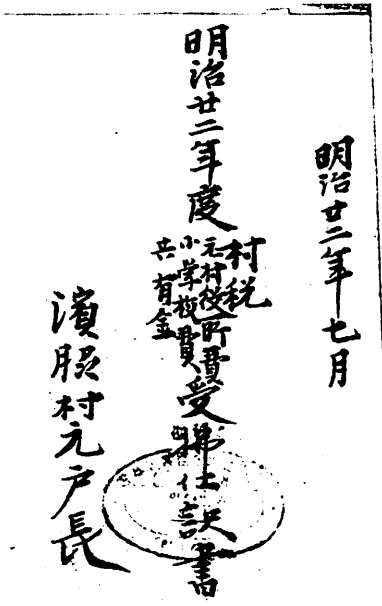 明治廿二年七月
明治廿二年度
村税
元村役所費
小学校費
共有金
受拂仕訳書
濱脇村元戸長